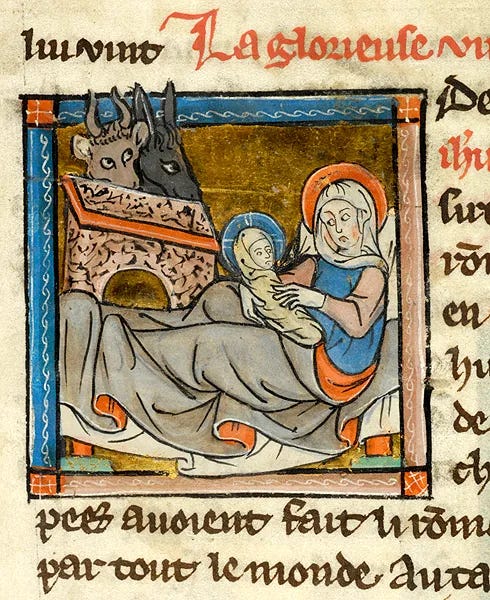 liu vint La glorieuse
De
sur
en
hu
de
ch
pees avoient fait li rōm
par tout le monde Auta